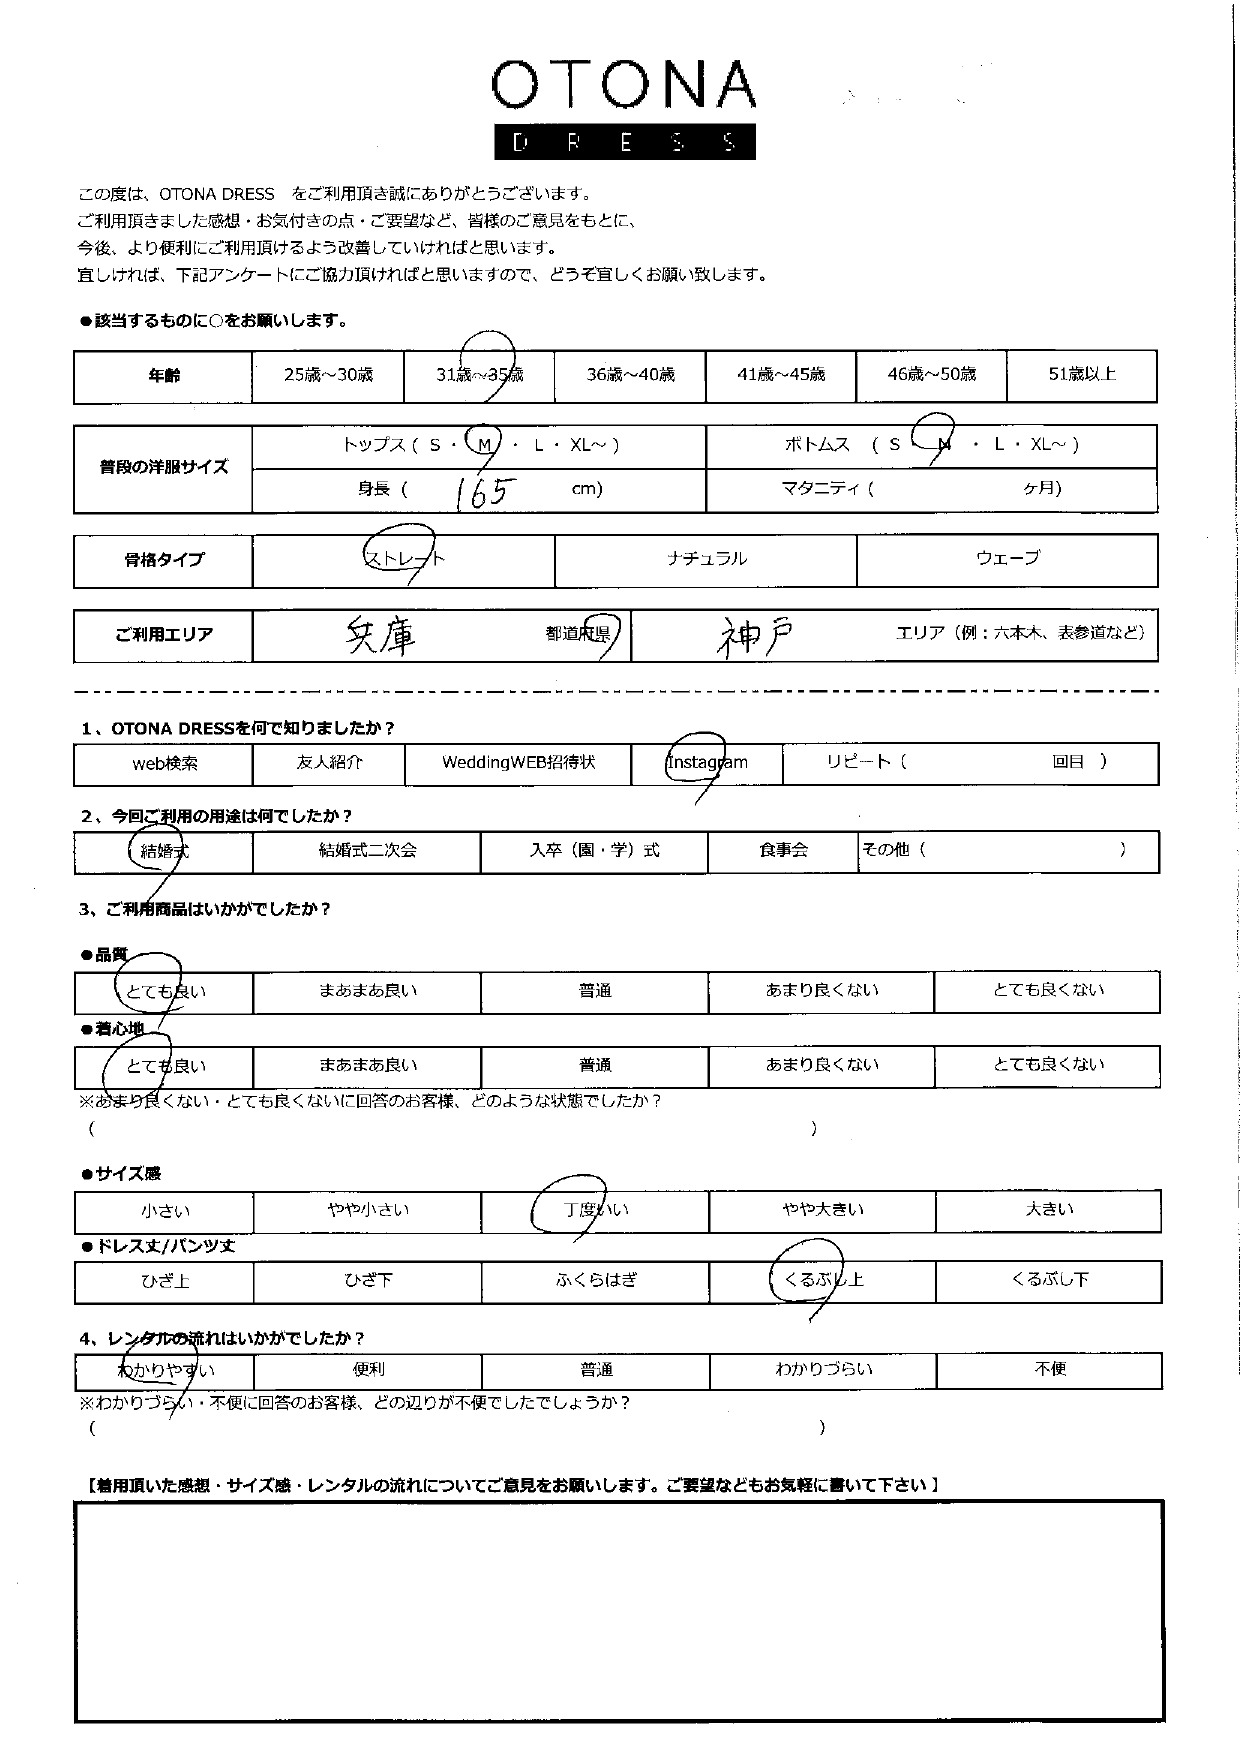 OTONA
DRESS
この度は、OTONA DRESS　をご利用頂き誠にありがとうございます。
ご利用頂きました感想・お気付きの点・ご要望など、皆様のご意見をもとに、
今後、より便利にご利用頂けるよう改善していければと思います。
宜しければ、下記アンケートにご協力頂ければと思いますので、どうぞ宜しくお願い致します。
●該当するものに○をお願いします。
年齢 25歳～30歳 31歳～35歳 36歳～40歳 41歳～45歳 46歳～50歳 51歳以上
普段の洋服サイズ トップス ( S ・ M ・ L ・ XL～ ) ボトムス ( S ・ M ・ L ・ XL～ )
身長 ( 165 cm) マタニティ ( ヶ月)
骨格タイプ ストレート ナチュラル ウェーブ
ご利用エリア 兵庫 都道府県 神戸 エリア（例：六本木、表参道など）
1、OTONA DRESSを何で知りましたか？
web検索 友人紹介 WeddingWEB招待状 Instagram リピート（ 回目 ）
2、今回ご利用の用途は何でしたか？
結婚式 結婚式二次会 入卒（園・学）式 食事会 その他（ ）
3、ご利用商品はいかがでしたか？
●品質
とても良い まあまあ良い 普通 あまり良くない とても良くない
●着心地
とても良い まあまあ良い 普通 あまり良くない とても良くない
※あまり良くない・とても良くないに回答のお客様、どのような状態でしたか？
（ ）
●サイズ感
小さい やや小さい 丁度いい やや大きい 大きい
●ドレス丈/パンツ丈
ひざ上 ひざ下 ふくらはぎ くるぶし上 くるぶし下
4、レンタルの流れはいかがでしたか？
わかりやすい 便利 普通 わかりづらい 不便
※わかりづらい・不便に回答のお客様、どの辺りが不便でしたでしょうか？
（ ）
【着用頂いた感想・サイズ感・レンタルの流れについてご意見をお願いします。ご要望などもお気軽に書いて下さい】